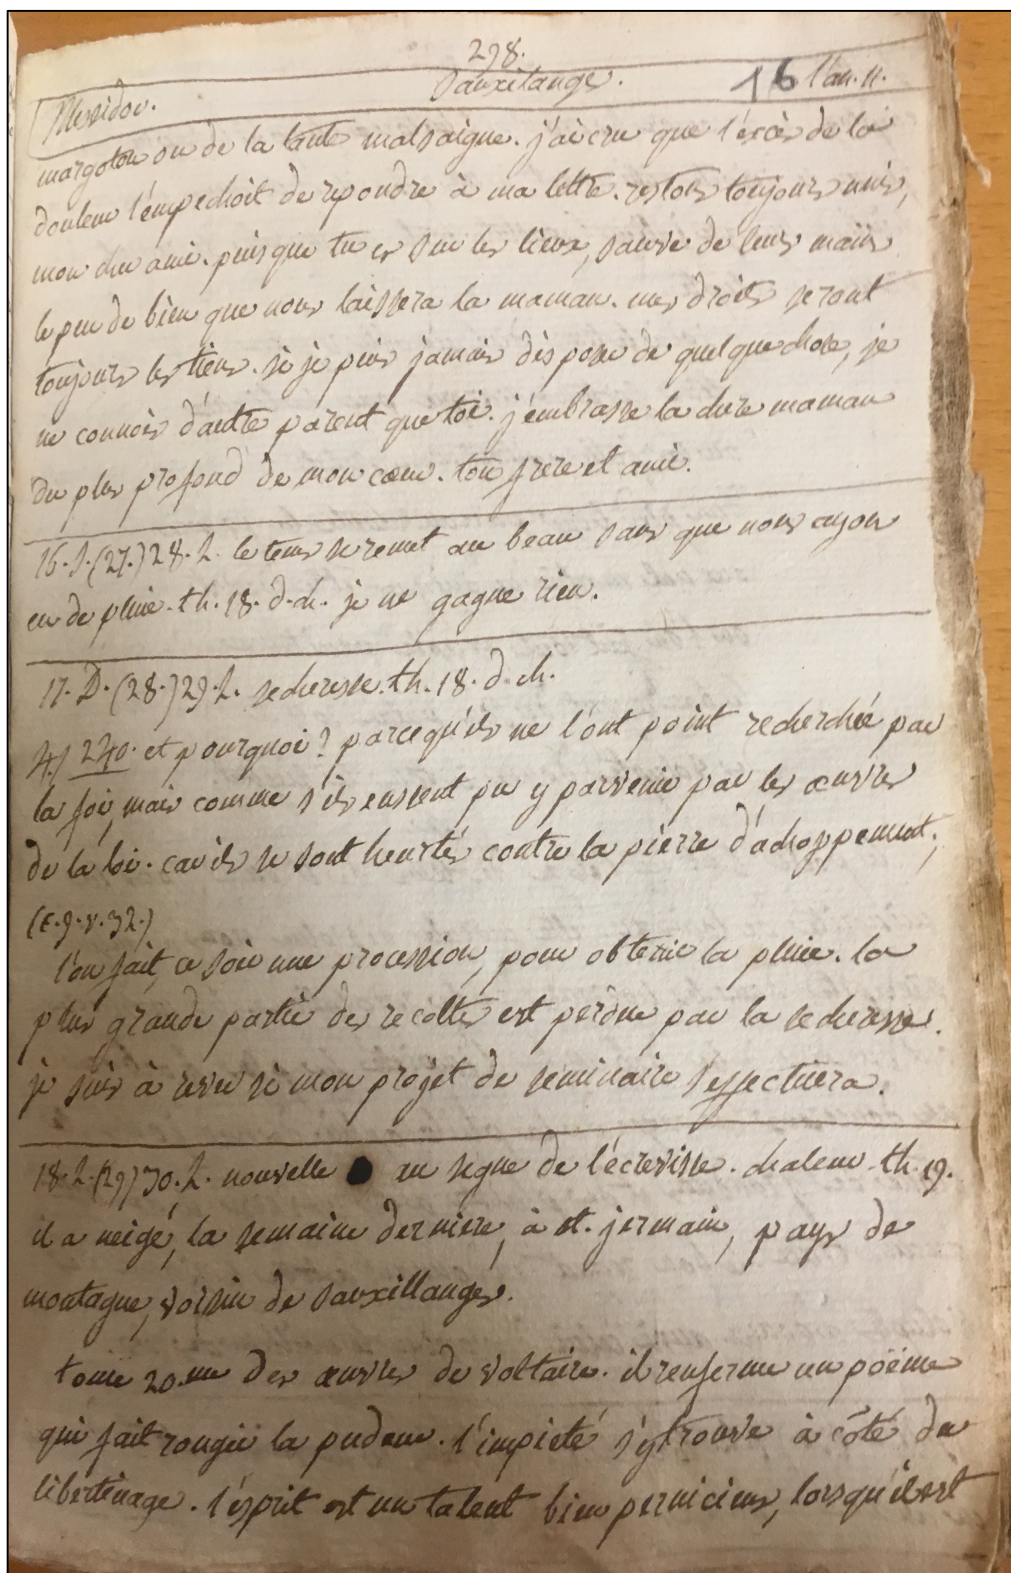 298.
Messidor. Sauxilanges. 16 l'an. 11.
margoton ou de la tante malsaigne. j'ai cru que l'excès de la
douleur l'empechoit de repondre à ma lettre. restons toujours unis,
mon cher ami. puisque tu es sur les lieux, sauve de leurs mains
le peu de bien que nous laissera la maman. mes droits seront
toujours les tiens. si je puis jamais disposer de quelque chose, je
ne connois d'autre parent que toi. j'embrasse la chere maman
du plus profond de mon cœur. ton frere et ami.
16. S. (27.) 28. L. le tems se remet au beau sans que nous ayons
eu de pluie. th. 18. d. ch. je ne gagne rien.
17. D. (28.) 29. L. secheresse. th. 18. d. ch.
4./ 240. et pourquoi? parcequ'ils ne l'ont point recherchée par
la foi, mais comme s'ils eussent pu y parvenir par les œuvres
de la loi. car ils se sont heurtés contre la pierre d'achoppement,
(E. 9. v. 32.)
l'on fait, ce soir une procession, pour obtenir la pluie. la
plus grande partie des recoltes est perdue par la secheresse.
je suis à rever si mon projet de seminaire s'effectuera.
18. L. (29) 30. L. nouvelle au signe de l'écrevisse. chaleur. th. 19.
il a neigé, la semaine derniere, à st. jermain, pays de
montagne, voisin de sauxillanges.
tome 20.me des œuvres de voltaire. il renferme un poëme
qui fait rougir la pudeur. l'impieté s'y trouve à côté du
libertinage. l'esprit est un talent bien pernicieux, lorsqu'il est